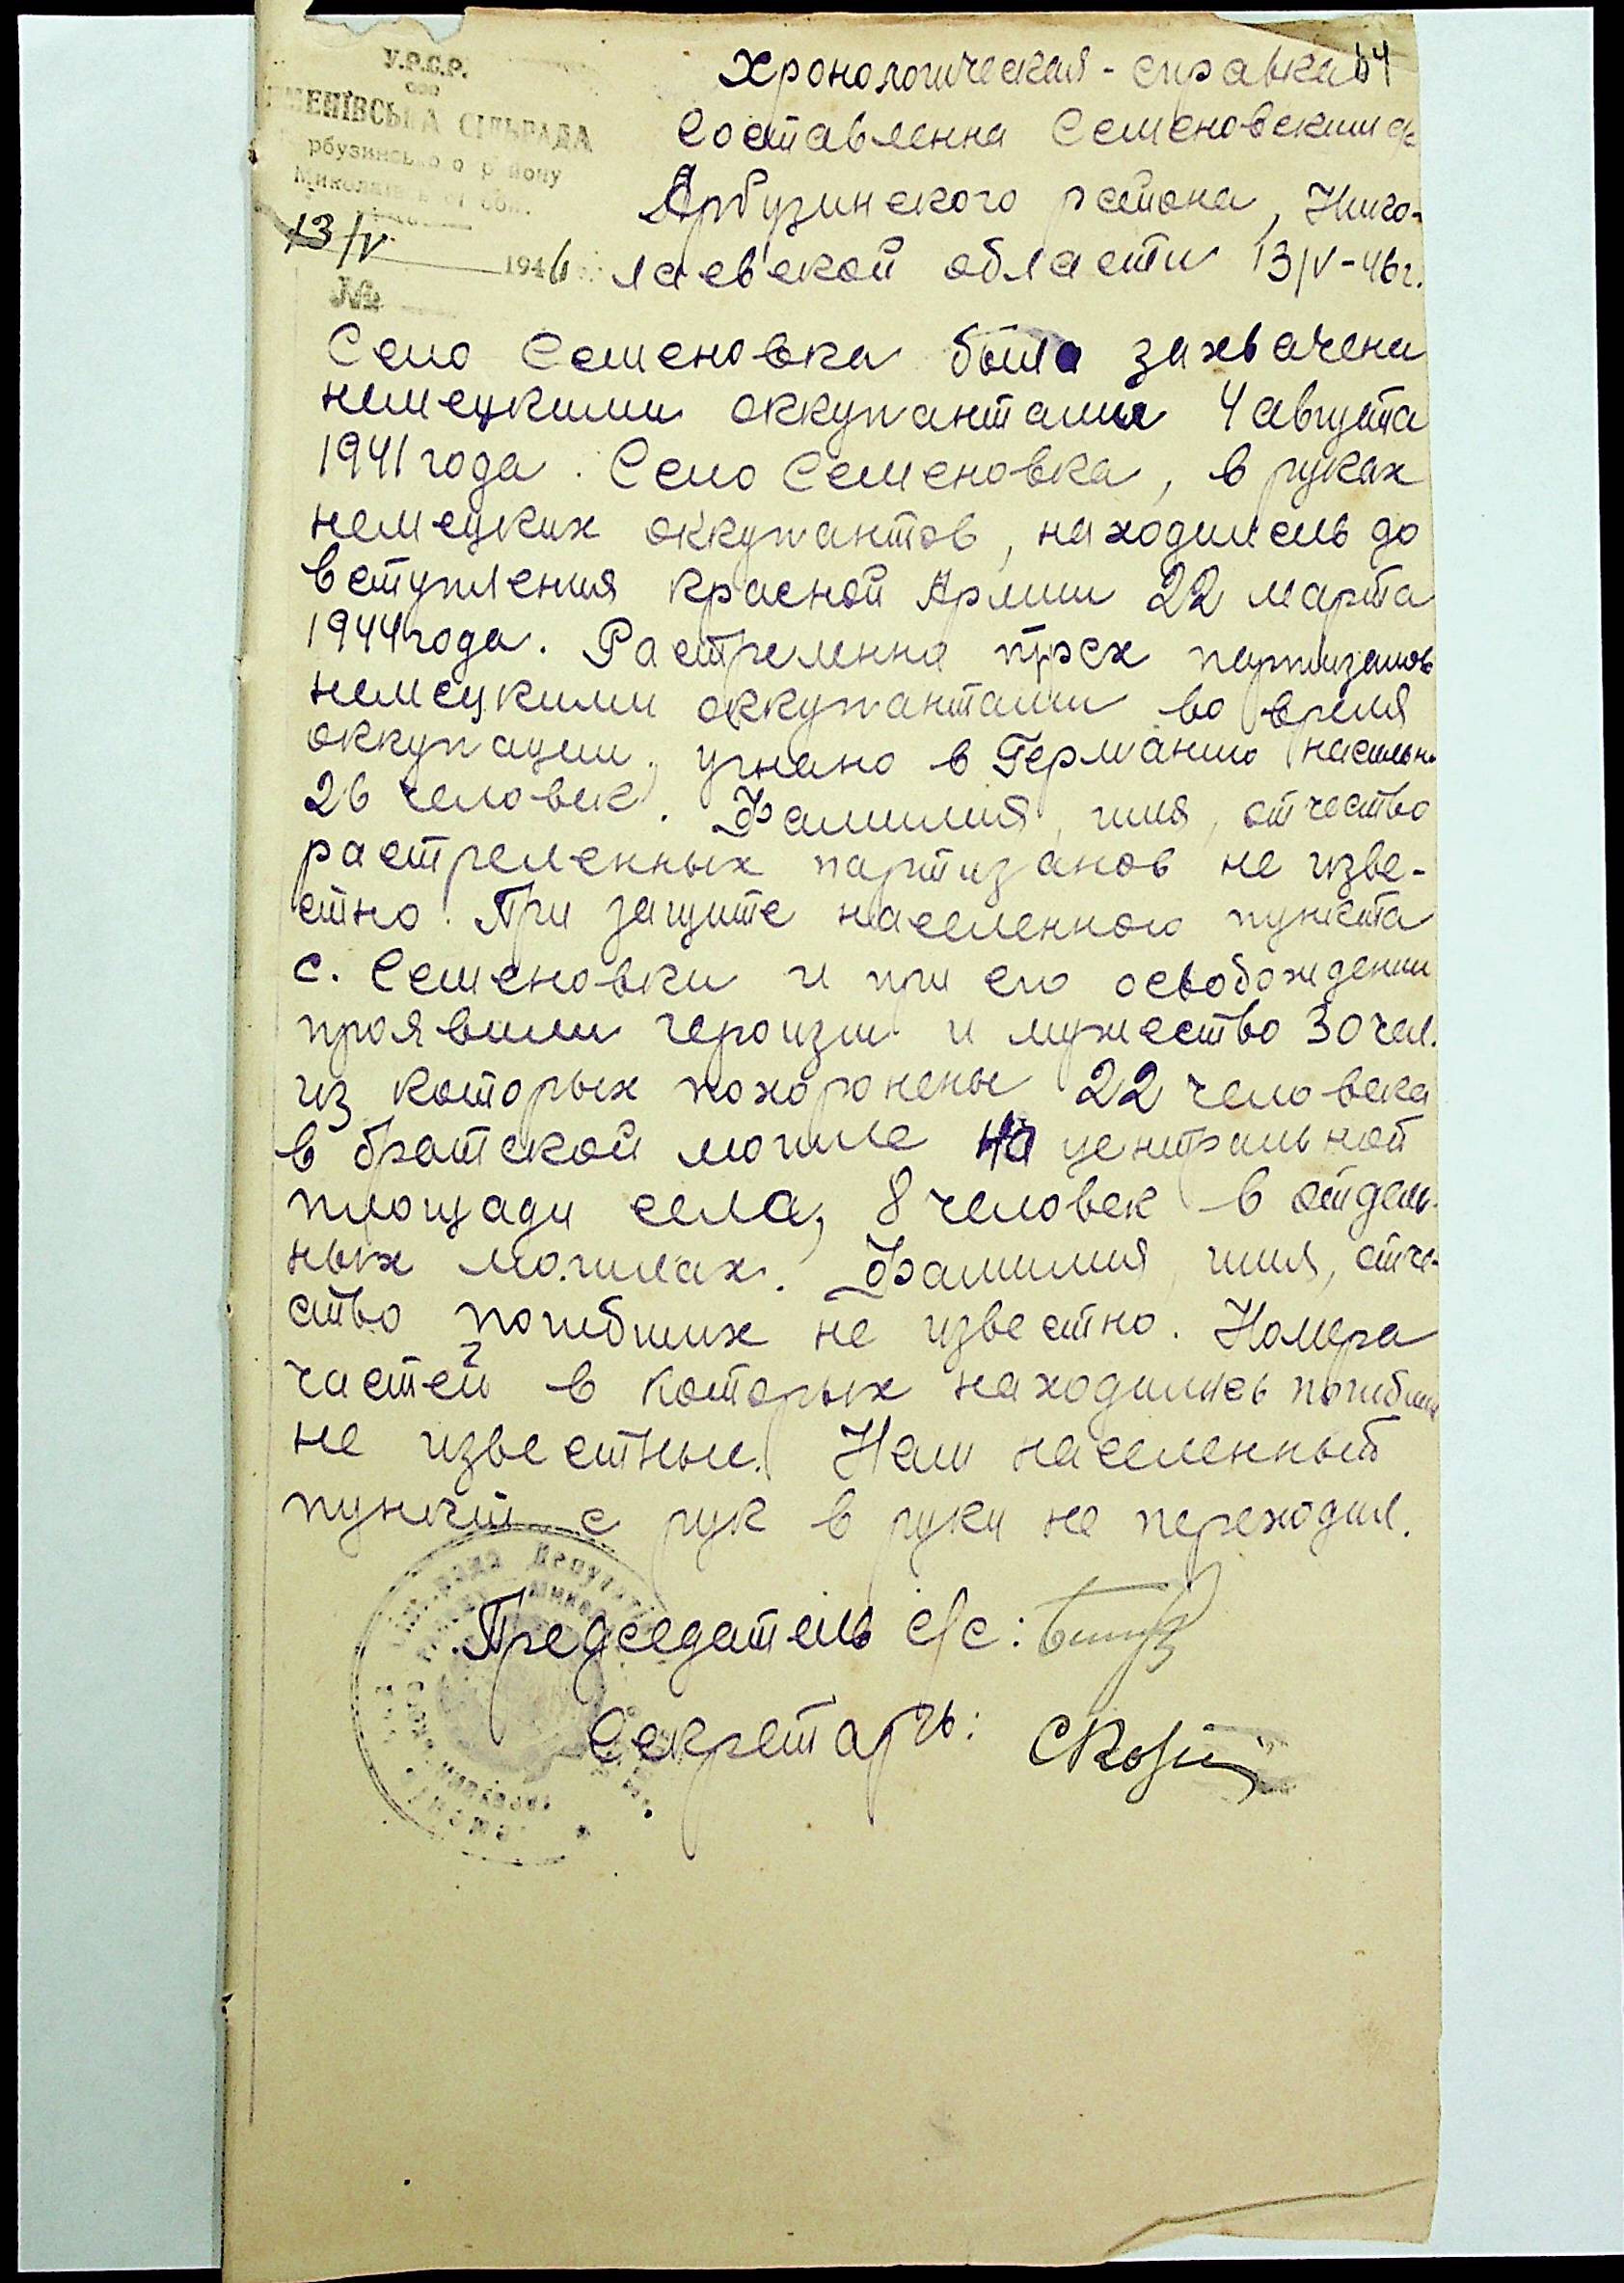 У.Р.С.Р.
СІЛЬРАДА
1946
13/V
№
64
Хронологическая - справка
Составленна Семеновским с/с
Арбузинского района, Нико-
лаевской области 13/V-46г.
Село Семеновка было захвачена
немецкими оккупантами 4 августа
1941 года. Село Семеновка, в руках
немецких оккупантов, находилось до
вступления Красной Армии 22 марта
1944 года. Растрелянно трех партизанов
немецкими оккупантами во время
оккупации, угнано в Германию насильно
26 человек. Фамилия, имя, отчество
растреленных партизанов не изве-
стно. При защите населенного пункта
с. Семеновки и при его освобождении
проявили героизм и мужество 30 чел.
из которых похоронены 22 человека
в братской могиле на центральной
площади села, 8 человек в отдель-
ных могилах. Фамилия, имя, отче-
ство погибших не известно. Номера
частей в которых находились погибшие
не известные. Наш населенный
пункт с рук в руки не переходил.
Председатель с/с:
Секретарь: